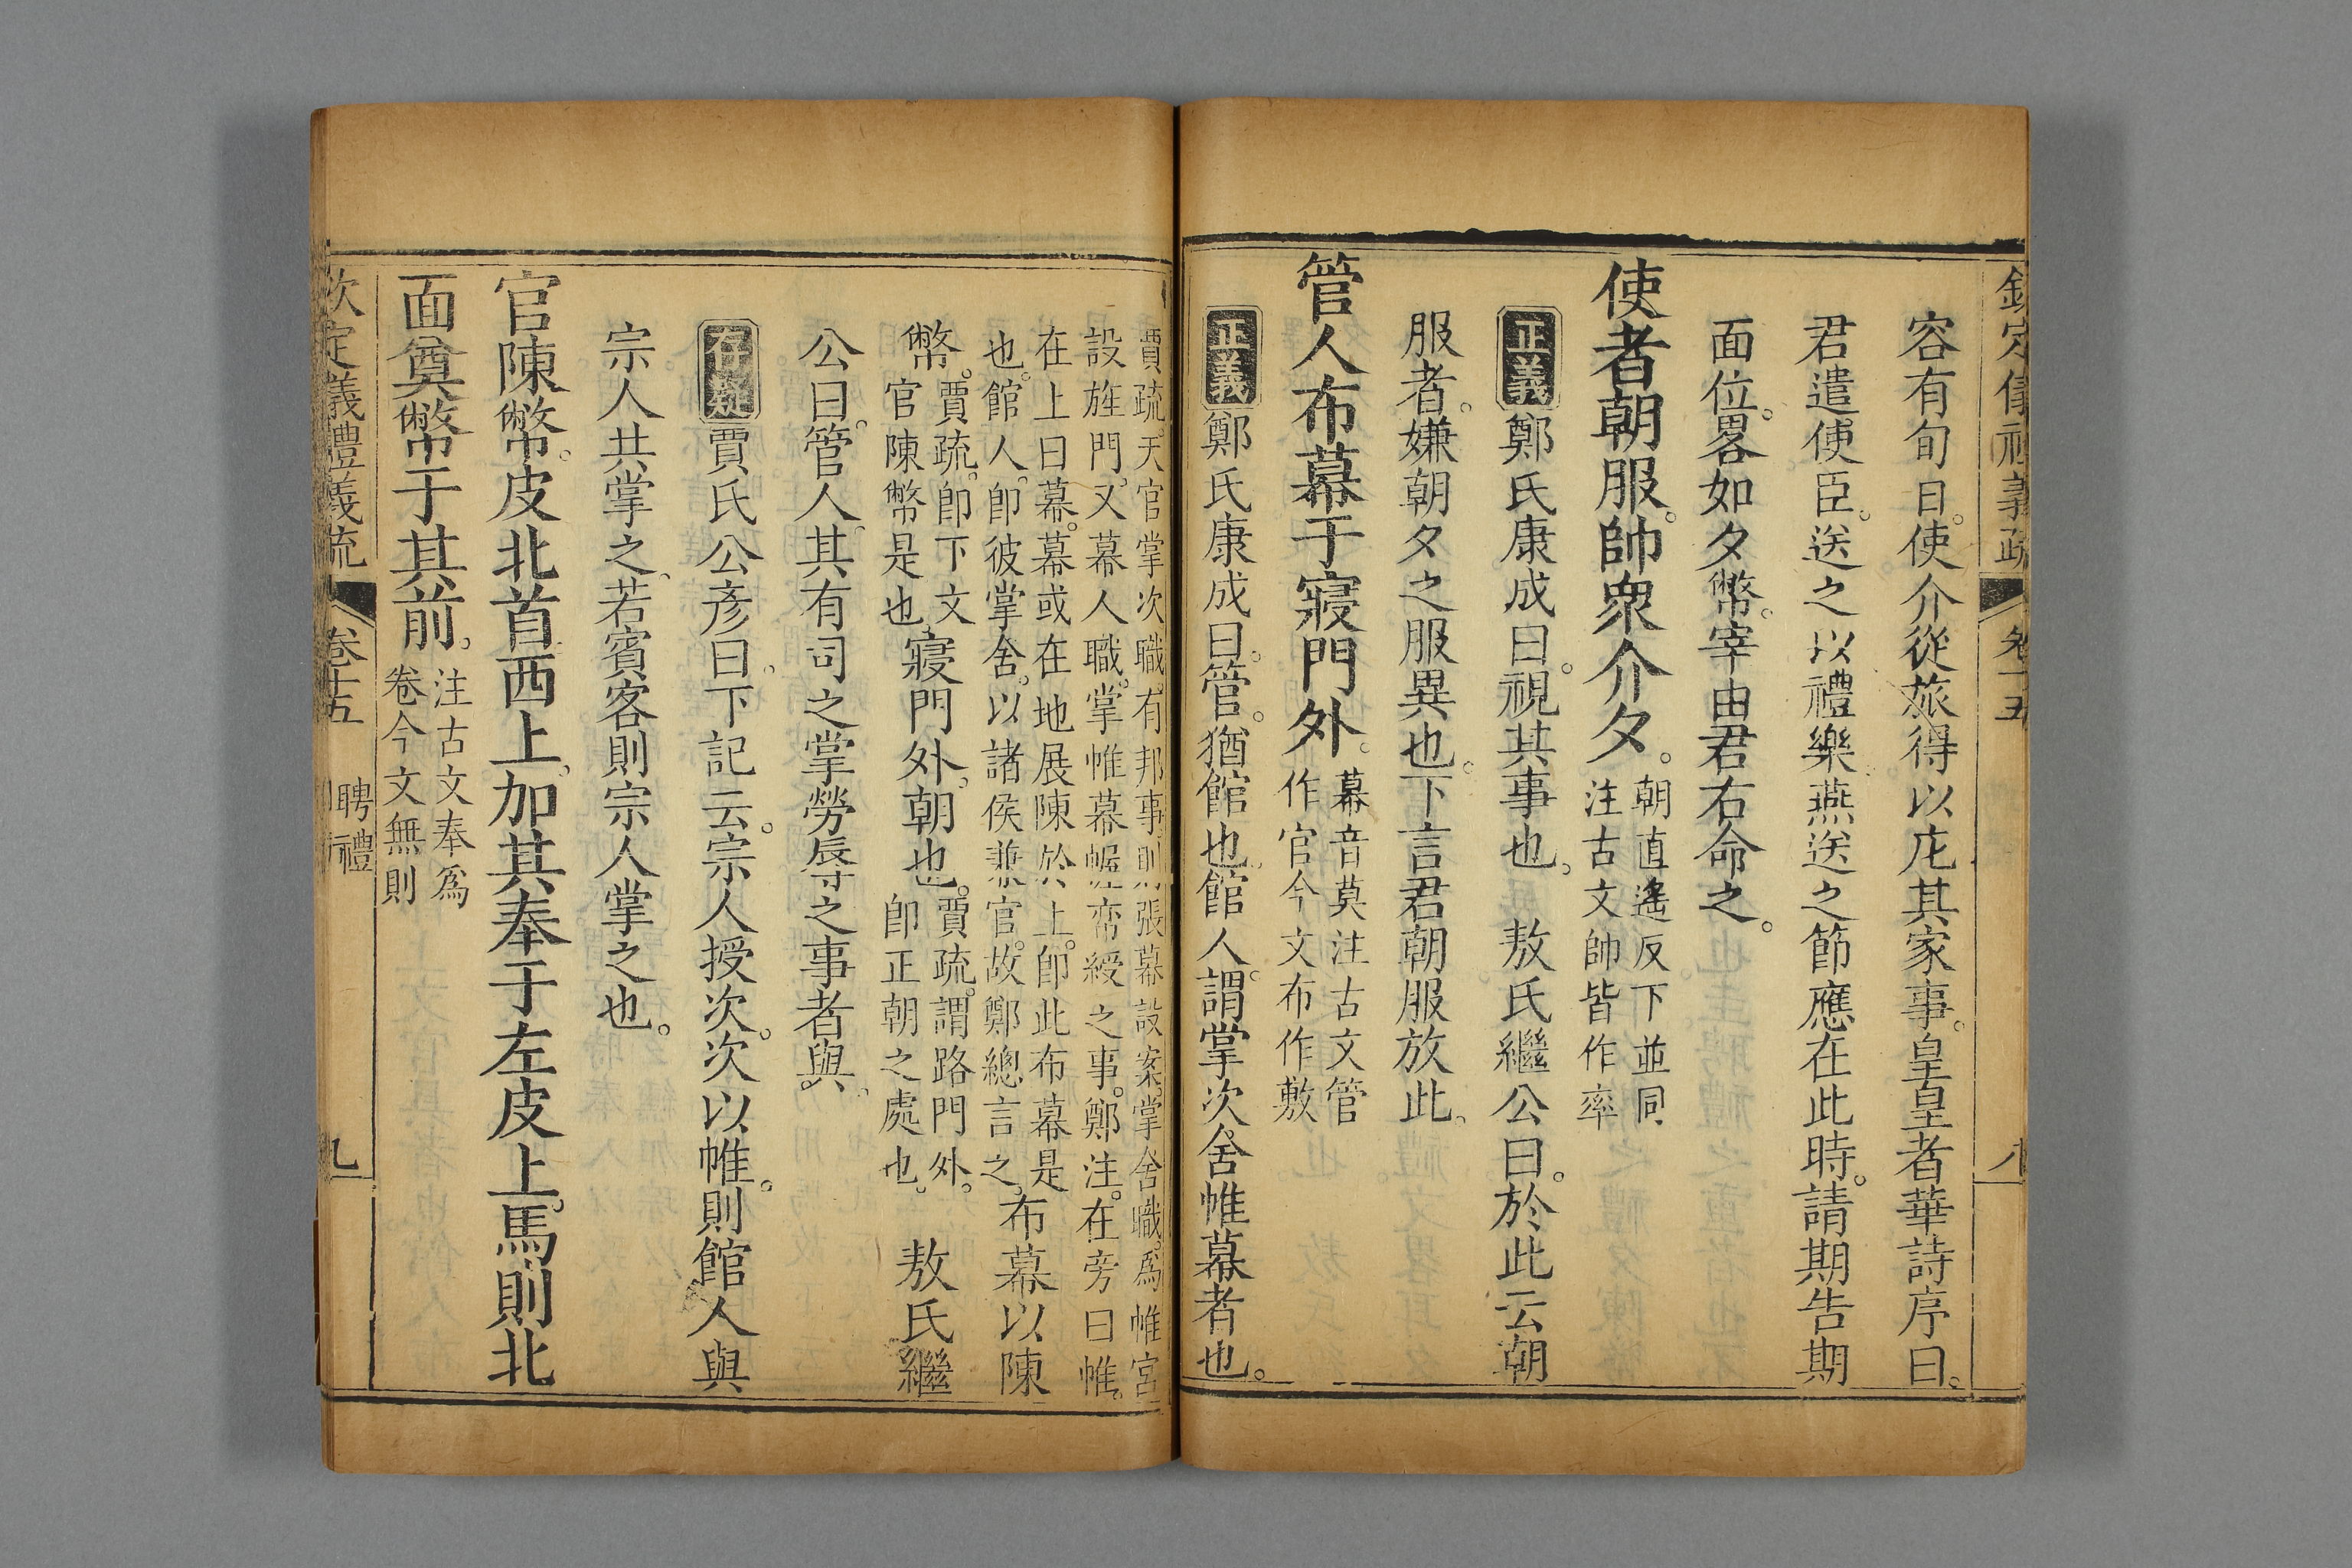 欽定儀禮義疏 卷十五 八
容有旬日使介從旅得以庀其家事。皇皇者華詩序曰。
君遣使臣。送之以禮樂。燕送之節應在此時。請期告期
面位。畧如夕幣。宰由君右命之。
使者朝服。帥衆介夕。朝直遙反下並同
注古文帥皆作率
正義鄭氏康成曰。視其事也。 敖氏繼公曰。於此云朝
服者。嫌朝夕之服異也。下言君朝服放此。
管人布幕于寢門外。幕音莫注古文管
作官今文布作敷
正義鄭氏康成曰。管。猶館也。館人。謂掌次舍帷幕者也。
賈疏。天官掌次職。有邦事則張幕設案。掌舍職。爲帷宮
設旌門。又幕人職。掌帷幕幄帟綬之事。鄭注。在旁曰帷。
在上曰幕。幕或在地展陳於上。卽此布幕是
也。館人。卽彼掌舍。以諸侯兼官。故鄭總言之。布幕以陳
幣。賈疏。卽下文
官陳幣是也。寢門外。朝也。賈疏。謂路門外。
卽正朝之處也。 敖氏繼
公曰。管人。其有司之掌勞辱之事者與。
存疑賈氏公彥曰。下記云。宗人授次。次以帷。則館人與
宗人共掌之。若賓客則宗人掌之也。
官陳幣。皮北首西上。加其奉于左皮上。馬則北
面奠幣于其前。注古文奉爲
卷今文無則
欽定儀禮義疏 卷十五 聘禮 九